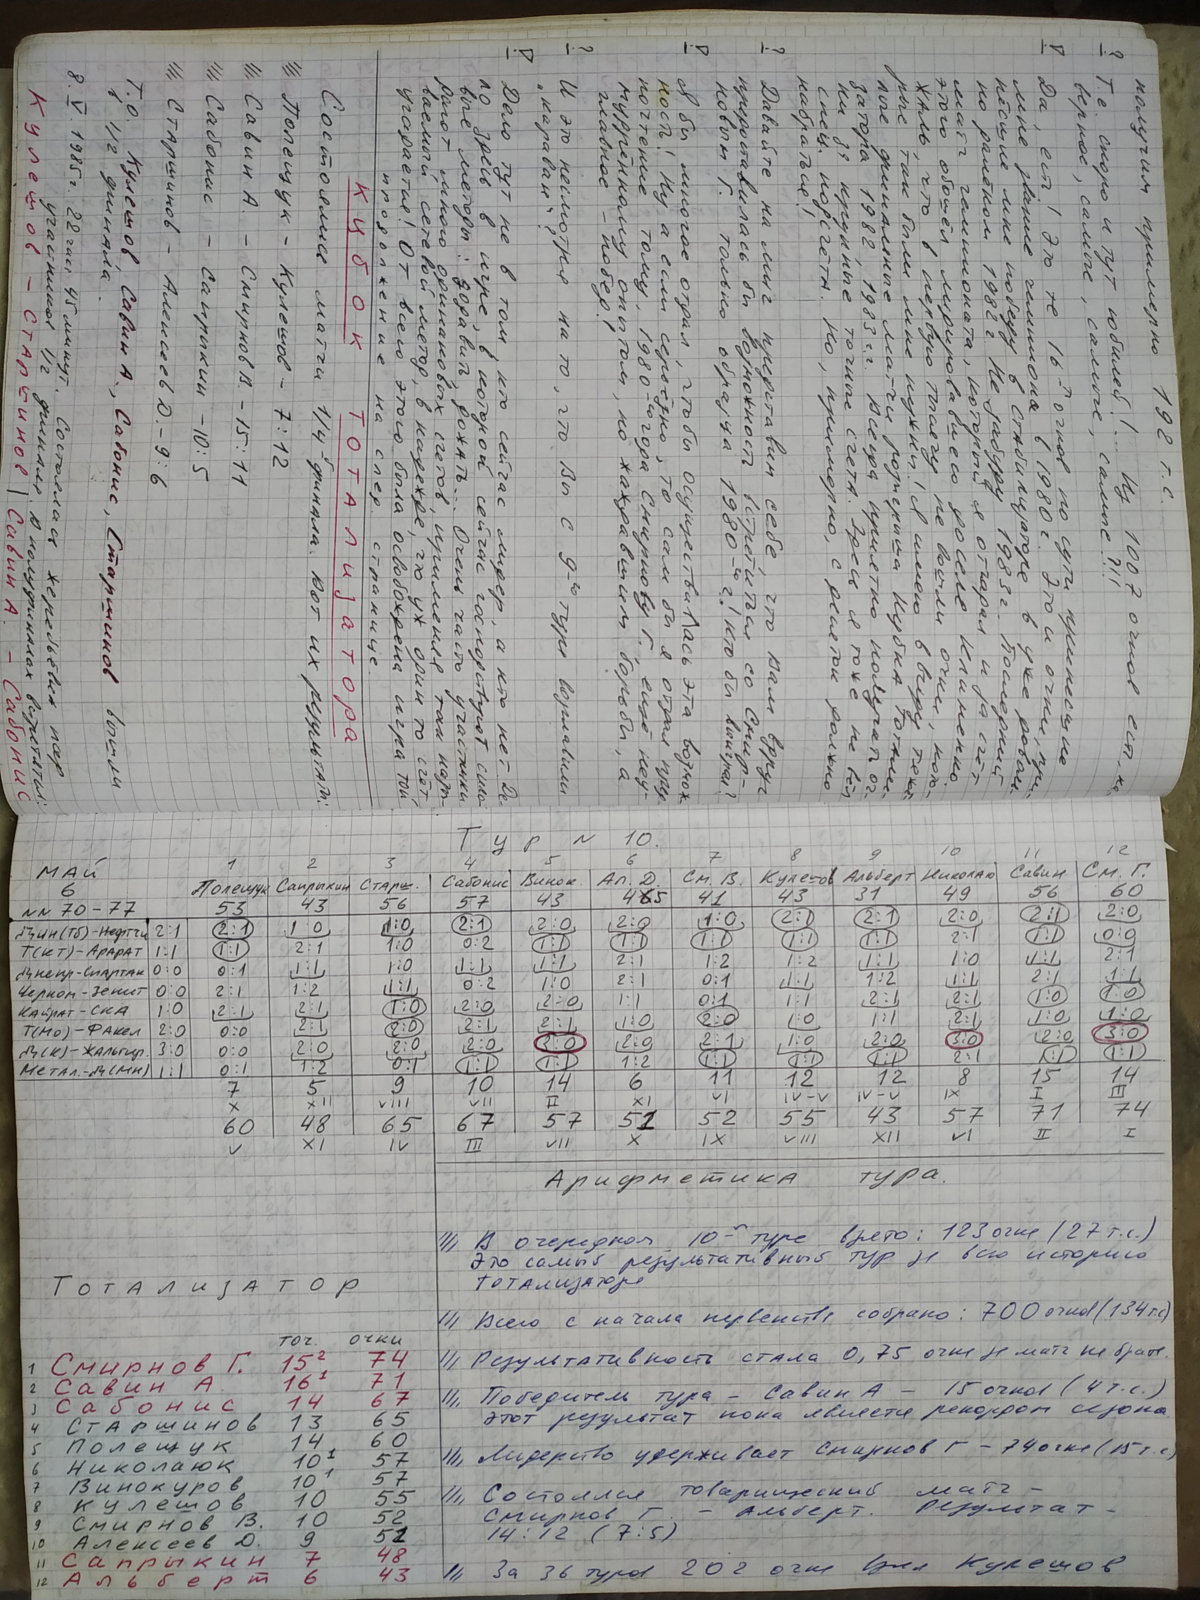 получим примерно 192 т.с.
? Т.е. скоро и тут юбилей!... Из 1007 очков есть, на-
верное, самые, самые, самые?!!
V Да, есть! Это те 16-ть очков по сути принесшие
мне звание чемпиона в 1980 г. Это и очки, при-
нёсшие мне победу в Стабилизаторе в уже
но разбитом 1982 г. Не забуду 1983 г. Последний
матч чемпионата, который я отыграл и за счёт
этого обошёл лидировавшего доселе Клименко.
Жаль, что в первую тысячу не вошли очки, кото-
рые так были мне нужны! Я имею в виду
финальные матчи розыгрыша Кубка Тотали-
затора 1982, 1983 г.г. Всегда приятно получать оч-
ки за крупные точные счета. Здесь я тоже не вёл
спец. подсчёта. Но, примерно, с десяток должно
набраться!
? Давайте на миг представим себе, что Вам вдруг
предоставилась бы возможность встретиться со Смир-
новым Г. только образца 1980-го г.! Кто бы выиграл?
V Я бы многое отдал, чтобы осуществилась эта возмож-
ность! Ну а если серьёзно, то сам бы я отдал пред-
почтение тому, 1980-го года Смирнову Г., ещё неу-
мудрённому опытом, но жаждавшим борьбы, а
главное – побед!
? И это несмотря на то, что Вы с 9-го тура возглавили
"караван"?
V Дело тут не в том, кто сейчас лидер, а кто нет. Де-
ло здесь в игре, в которой сейчас господствуют сило-
вые методы: додавить, дожать... Очень часто участники
дают много одинаковых счетов, применяя так назы-
ваемый сетевой метод, в надежде, что уж один то счёт
угадается! От всего этого была освобождена игра той
продолжение на след. странице.
КУБОК ТОТАЛИЗАТОРА
Состоялись матчи 1/4 финала. Вот их результаты:
/// Полещук – Кулешов – 7:12
/// Савин А. – Смирнов В – 15:11
/// Сабонис – Сапрыкин – 10:5
/// Старшинов – Алексеев Д. – 9:6
Т.о. Кулешов, Савин А., Сабонис, Старшинов вышли
в 1/2 финала.
8.V.1985 г. 22 час 45 минут. Состоялась жеребьёвка пар
участников 1/2 финала. В полуфиналах встретятся:
Кулешов – Старшинов | Савин А. – Сабонис
Тур N 10.
МАЙ 1 2 3 4 5 6 7 8 9 10 11 12
6 Полещук Сапрыкин Старш. Сабонис Винок. Ал. Д. См. В. Кулешов Альберт Николаюк Савин См. Г.
NN 70-77 53 43 56 57 43 45 41 43 31 49 56 60
Дин(Тб)-Нефтчи 2:1 2:1 1:0 1:0 2:1 2:0 2:0 1:0 2:1 2:1 2:0 2:1 2:0
Т(КТ)-Арарат 1:1 1:1 2:1 1:0 0:2 1:1 1:1 1:1 1:1 1:1 2:1 1:1 0:0
Днепр-Спартак 0:0 0:1 1:1 1:0 1:1 1:1 2:1 1:2 1:2 1:1 1:0 1:1 2:1
Черном-Зенит 0:0 2:1 1:2 1:1 0:2 1:0 2:1 0:1 1:1 1:2 1:1 2:1 1:1
Кайрат-СКА 1:0 2:1 2:1 1:0 2:0 2:0 1:1 0:1 1:1 2:1 2:1 1:0 1:0
Т(Мо)-Факел 2:0 0:0 2:1 2:0 2:1 2:1 1:0 2:0 1:0 1:1 2:1 1:0 1:0
Д(К)-Жальгир. 3:0 0:0 2:0 2:0 2:0 3:0 2:0 2:1 1:0 2:0 3:0 2:0 3:0
Метал.-Д(Мн) 1:1 0:1 1:2 0:1 1:1 1:1 1:2 1:1 1:1 1:1 2:1 1:1 1:1
7 5 9 10 14 6 11 12 12 8 15 14
X XII VIII VII II XI VI IV-V IV-V IX I III
60 48 65 67 57 51 52 55 43 57 71 74
V XI IV III VII X IX VIII XII VI II I
Арифметика тура.
/// В очередном 10-м туре взято: 123 очка (27 т.с.)
Это самый результативный тур за всю историю
тотализатора
/// Всего с начала первенства собрано: 700 очков (134 т.с)
/// Результативность стала 0,75 очка за матч на брата.
/// Победитель тура – Савин А – 15 очков (4 т.с.)
Этот результат пока является рекордом сезона
/// Лидерство удерживает Смирнов Г – 74 очка (15 т.с)
/// Состоялся товарищеский матч –
Смирнов Г. – Альберт. Результат –
14:12 (7:5)
/// За 36 туров 202 очка взял Кулешов
Тотализатор
точ. очки
1 Смирнов Г. 15² 74
2 Савин А 16¹ 71
3 Сабонис 14 67
4 Старшинов 13 65
5 Полещук 14 60
6 Николаюк 10¹ 57
7 Винокуров 10¹ 57
8 Кулешов 10 55
9 Смирнов В. 10 52
10 Алексеев Д. 9 51
11 Сапрыкин 7 48
12 Альберт 6 43